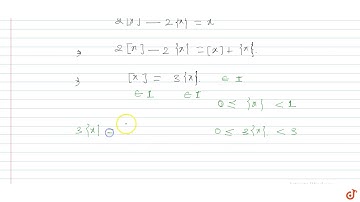 2[x] - 2{x} = x
⇒ 2[x] - 2{x} = [x] + {x}.
⇒ [x] = 3{x}. ∈ I
∈ I ∈ I
0 ≤ {x} < 1
3{x} = 0 ≤ 3{x}. < 3